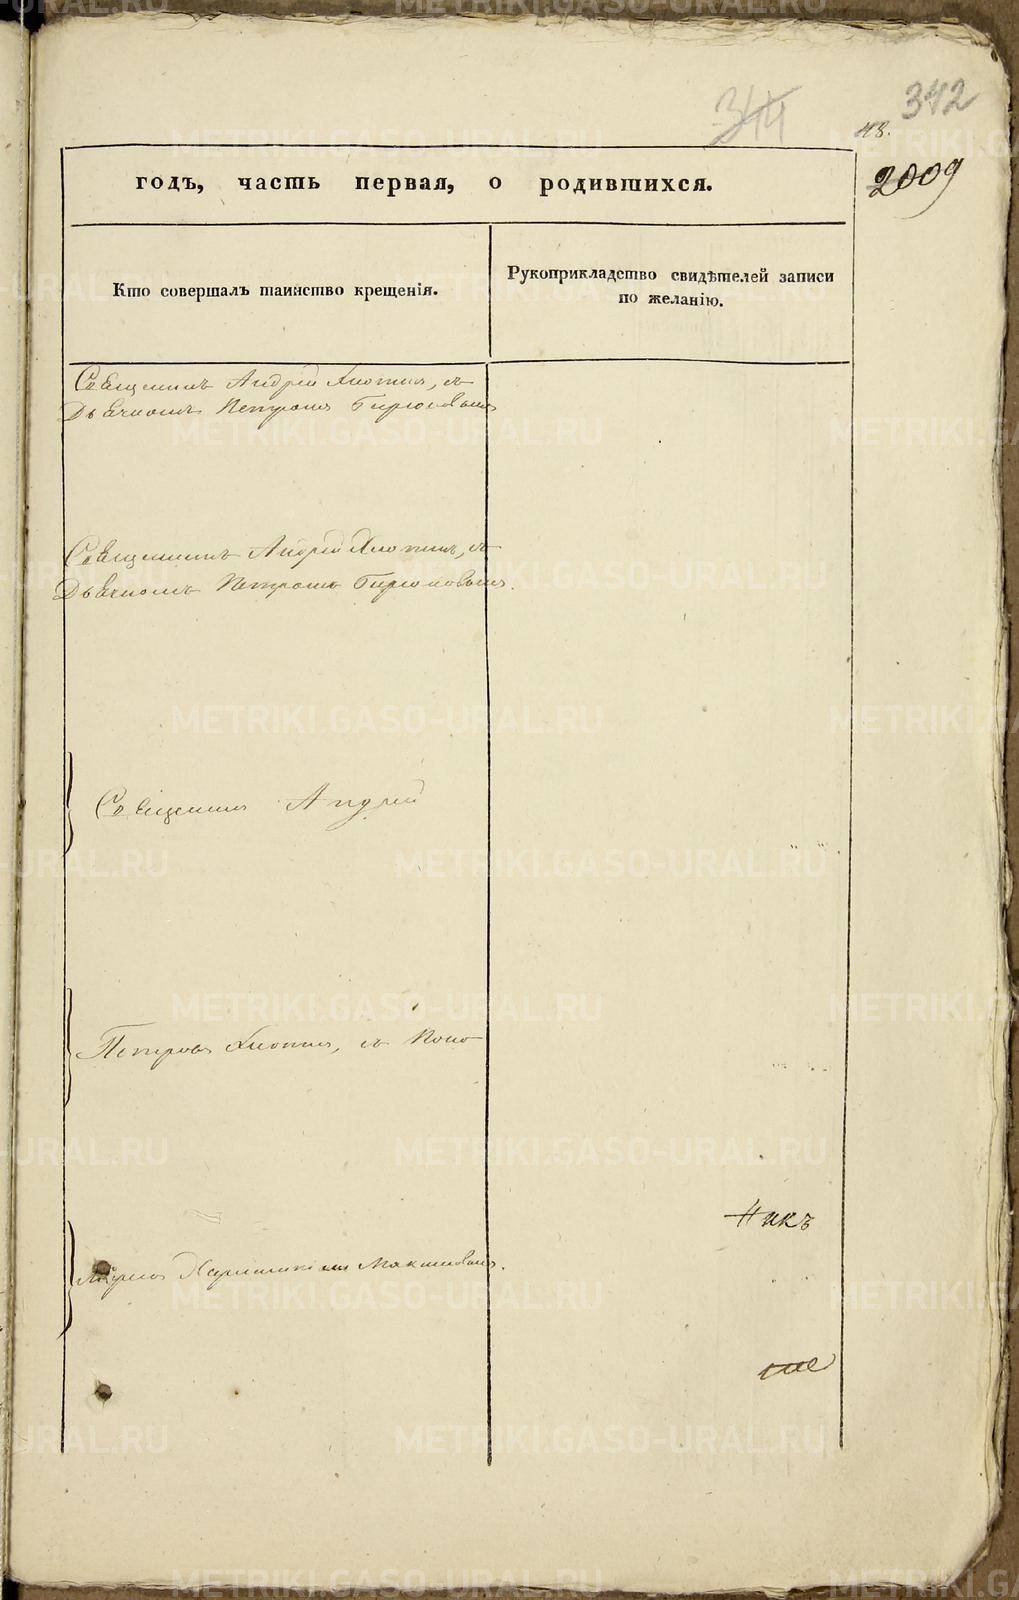 344
342
43.
2009
годъ, часть первая, о родившихся.
Кто совершалъ таинство крещенія.
Рукоприкладство свидѣтелей записи
по желанію.
Священникъ Андрей Хлопинъ, съ
Дьячкомъ Петромъ Бирюковымъ
Священникъ Андрей Хлопинъ, съ
Дьячкомъ Петромъ Бирюковымъ.
Священникъ Андрей
Петровъ Хлопинъ, съ Поно
маремъ Максимовымъ.
METRIKI.GASO-URAL.RU